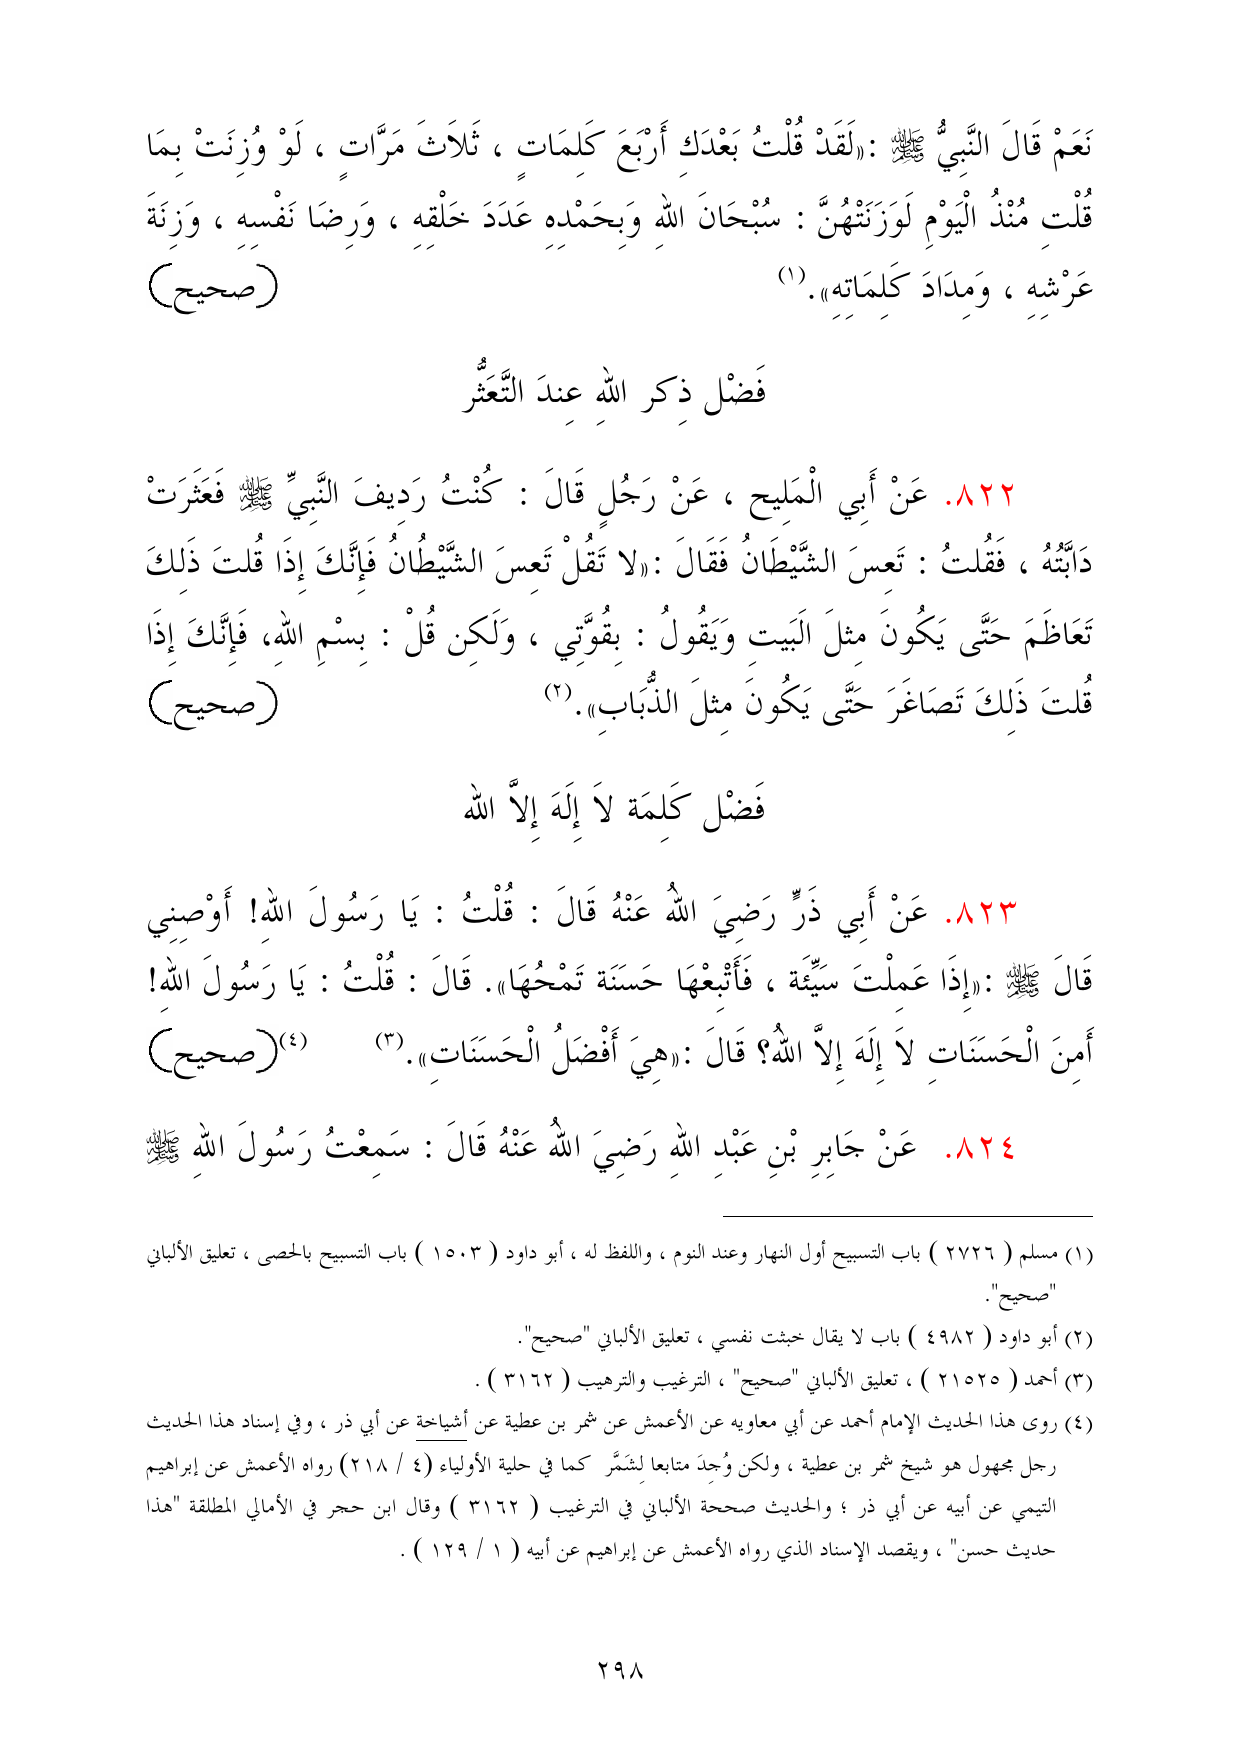 نَعَمْ قَالَ النَّبِيُّ ﷺ :«لَقَدْ قُلْتُ بَعْدَكِ أَرْبَعَ كَلِمَاتٍ ، ثَلاَثَ مَرَّاتٍ ، لَوْ وُزِنَتْ بِمَا
قُلْتِ مُنْذُ الْيَوْمِ لَوَزَنَتْهُنَّ : سُبْحَانَ اللهِ وَبِحَمْدِهِ عَدَدَ خَلْقِهِ ، وَرِضَا نَفْسِهِ ، وَزِنَةَ
عَرْشِهِ ، وَمِدَادَ كَلِمَاتِهِ».(١) (صحيح)
فَضْل ذِكر اللهِ عِندَ التَّعَثُّر
٨٢٢. عَنْ أَبِي الْمَلِيح ، عَنْ رَجُلٍ قَالَ : كُنْتُ رَدِيفَ النَّبِيِّ ﷺ فَعَثَرَتْ
دَابَّتُهُ ، فَقُلتُ : تَعِسَ الشَّيْطَانُ فَقَالَ :«لا تَقُلْ تَعِسَ الشَّيْطَانُ فَإِنَّكَ إِذَا قُلتَ ذَلِكَ
تَعَاظَمَ حَتَّى يَكُونَ مِثلَ البَيتِ وَيَقُولُ : بِقُوَّتِي ، وَلَكِن قُلْ : بِسْمِ اللهِ، فَإِنَّكَ إِذَا
قُلتَ ذَلِكَ تَصَاغَرَ حَتَّى يَكُونَ مِثلَ الذُّبَابِ».(٢) (صحيح)
فَضْل كَلِمَة لاَ إِلَهَ إِلاَّ الله
٨٢٣. عَنْ أَبِي ذَرٍّ رَضِيَ اللهُ عَنْهُ قَالَ : قُلْتُ : يَا رَسُولَ اللهِ! أَوْصِنِي
قَالَ ﷺ :«إِذَا عَمِلْتَ سَيِّئَة ، فَأَتْبِعْهَا حَسَنَة تَمْحُهَا». قَالَ : قُلْتُ : يَا رَسُولَ اللهِ!
أَمِنَ الْحَسَنَاتِ لاَ إِلَهَ إِلاَّ اللهُ؟ قَالَ :«هِيَ أَفْضَلُ الْحَسَنَاتِ».(٣) (٤)(صحيح)
٨٢٤. عَنْ جَابِرِ بْنِ عَبْدِ اللهِ رَضِيَ اللهُ عَنْهُ قَالَ : سَمِعْتُ رَسُولَ اللهِ ﷺ
(١) مسلم ( ٢٧٢٦ ) باب التسبيح أول النهار وعند النوم ، واللفظ له ، أبو داود ( ١٥٠٣ ) باب التسبيح بالحصى ، تعليق الألباني
"صحيح".
(٢) أبو داود ( ٤٩٨٢ ) باب لا يقال خبثت نفسي ، تعليق الألباني "صحيح".
(٣) أحمد ( ٢١٥٢٥ ) ، تعليق الألباني "صحيح" ، الترغيب والترهيب ( ٣١٦٢ ) .
(٤) روى هذا الحديث الإمام أحمد عن أبي معاويه عن الأعمش عن شمر بن عطية عن أشياخة عن أبي ذر ، وفي إسناد هذا الحديث
رجل مجهول هو شيخ شمر بن عطية ، ولكن وُجِدَ متابعا لِشَمَّر كما في حلية الأولياء (٤ / ٢١٨) رواه الأعمش عن إبراهيم
التيمي عن أبيه عن أبي ذر ؛ والحديث صححة الألباني في الترغيب ( ٣١٦٢ ) وقال ابن حجر في الأمالي المطلقة "هذا
حديث حسن" ، ويقصد الإسناد الذي رواه الأعمش عن إبراهيم عن أبيه ( ١ / ١٢٩ ) .
٢٩٨